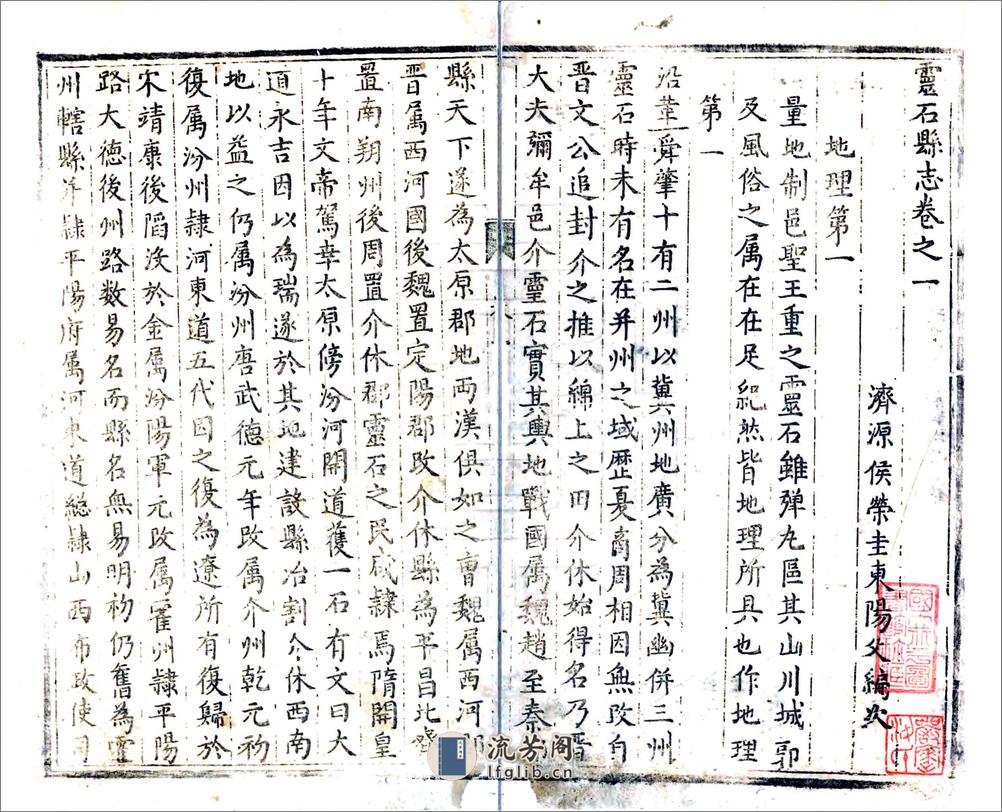 靈石縣志卷之一
濟源侯榮圭東陽父編次
地理第一
量地制邑聖王重之靈石雖弹丸區其山川城郭
及風俗之属在在足紀然皆地理所具也作地理
第一
沿革舜肇十有二州以冀州地廣分為冀幽併三州
靈石時未有名在并州之域歴夏商周相因無改自
晋文公追封介之推以綿上之田介休始得名乃晋
大夫彌牟邑介靈石實其輿地戰國属魏趙至秦
縣天下遂為太原郡地両漢俱如之曹魏属西河郡
晋属西河國後魏置定陽郡改介休縣為平昌北齊
置南朔州後周置介休郡靈石之民咸隷焉隋開皇
十年文帝駕幸太原傍汾河開道獲一石有文曰大
道永吉因以為瑞遂於其地建設縣治割介休西南
地以益之仍属汾州唐武德元年改属介州乾元初
復属汾州隷河東道五代因之復為遼所有復歸於
宋靖康後䧟没於金属汾陽軍元改属霍州隷平陽
路大德後州路数易名而縣名無易明初仍舊為霍
州轄縣并隷平陽府属河東道總隷山西布政使司
流芳阁
lfglib.cn